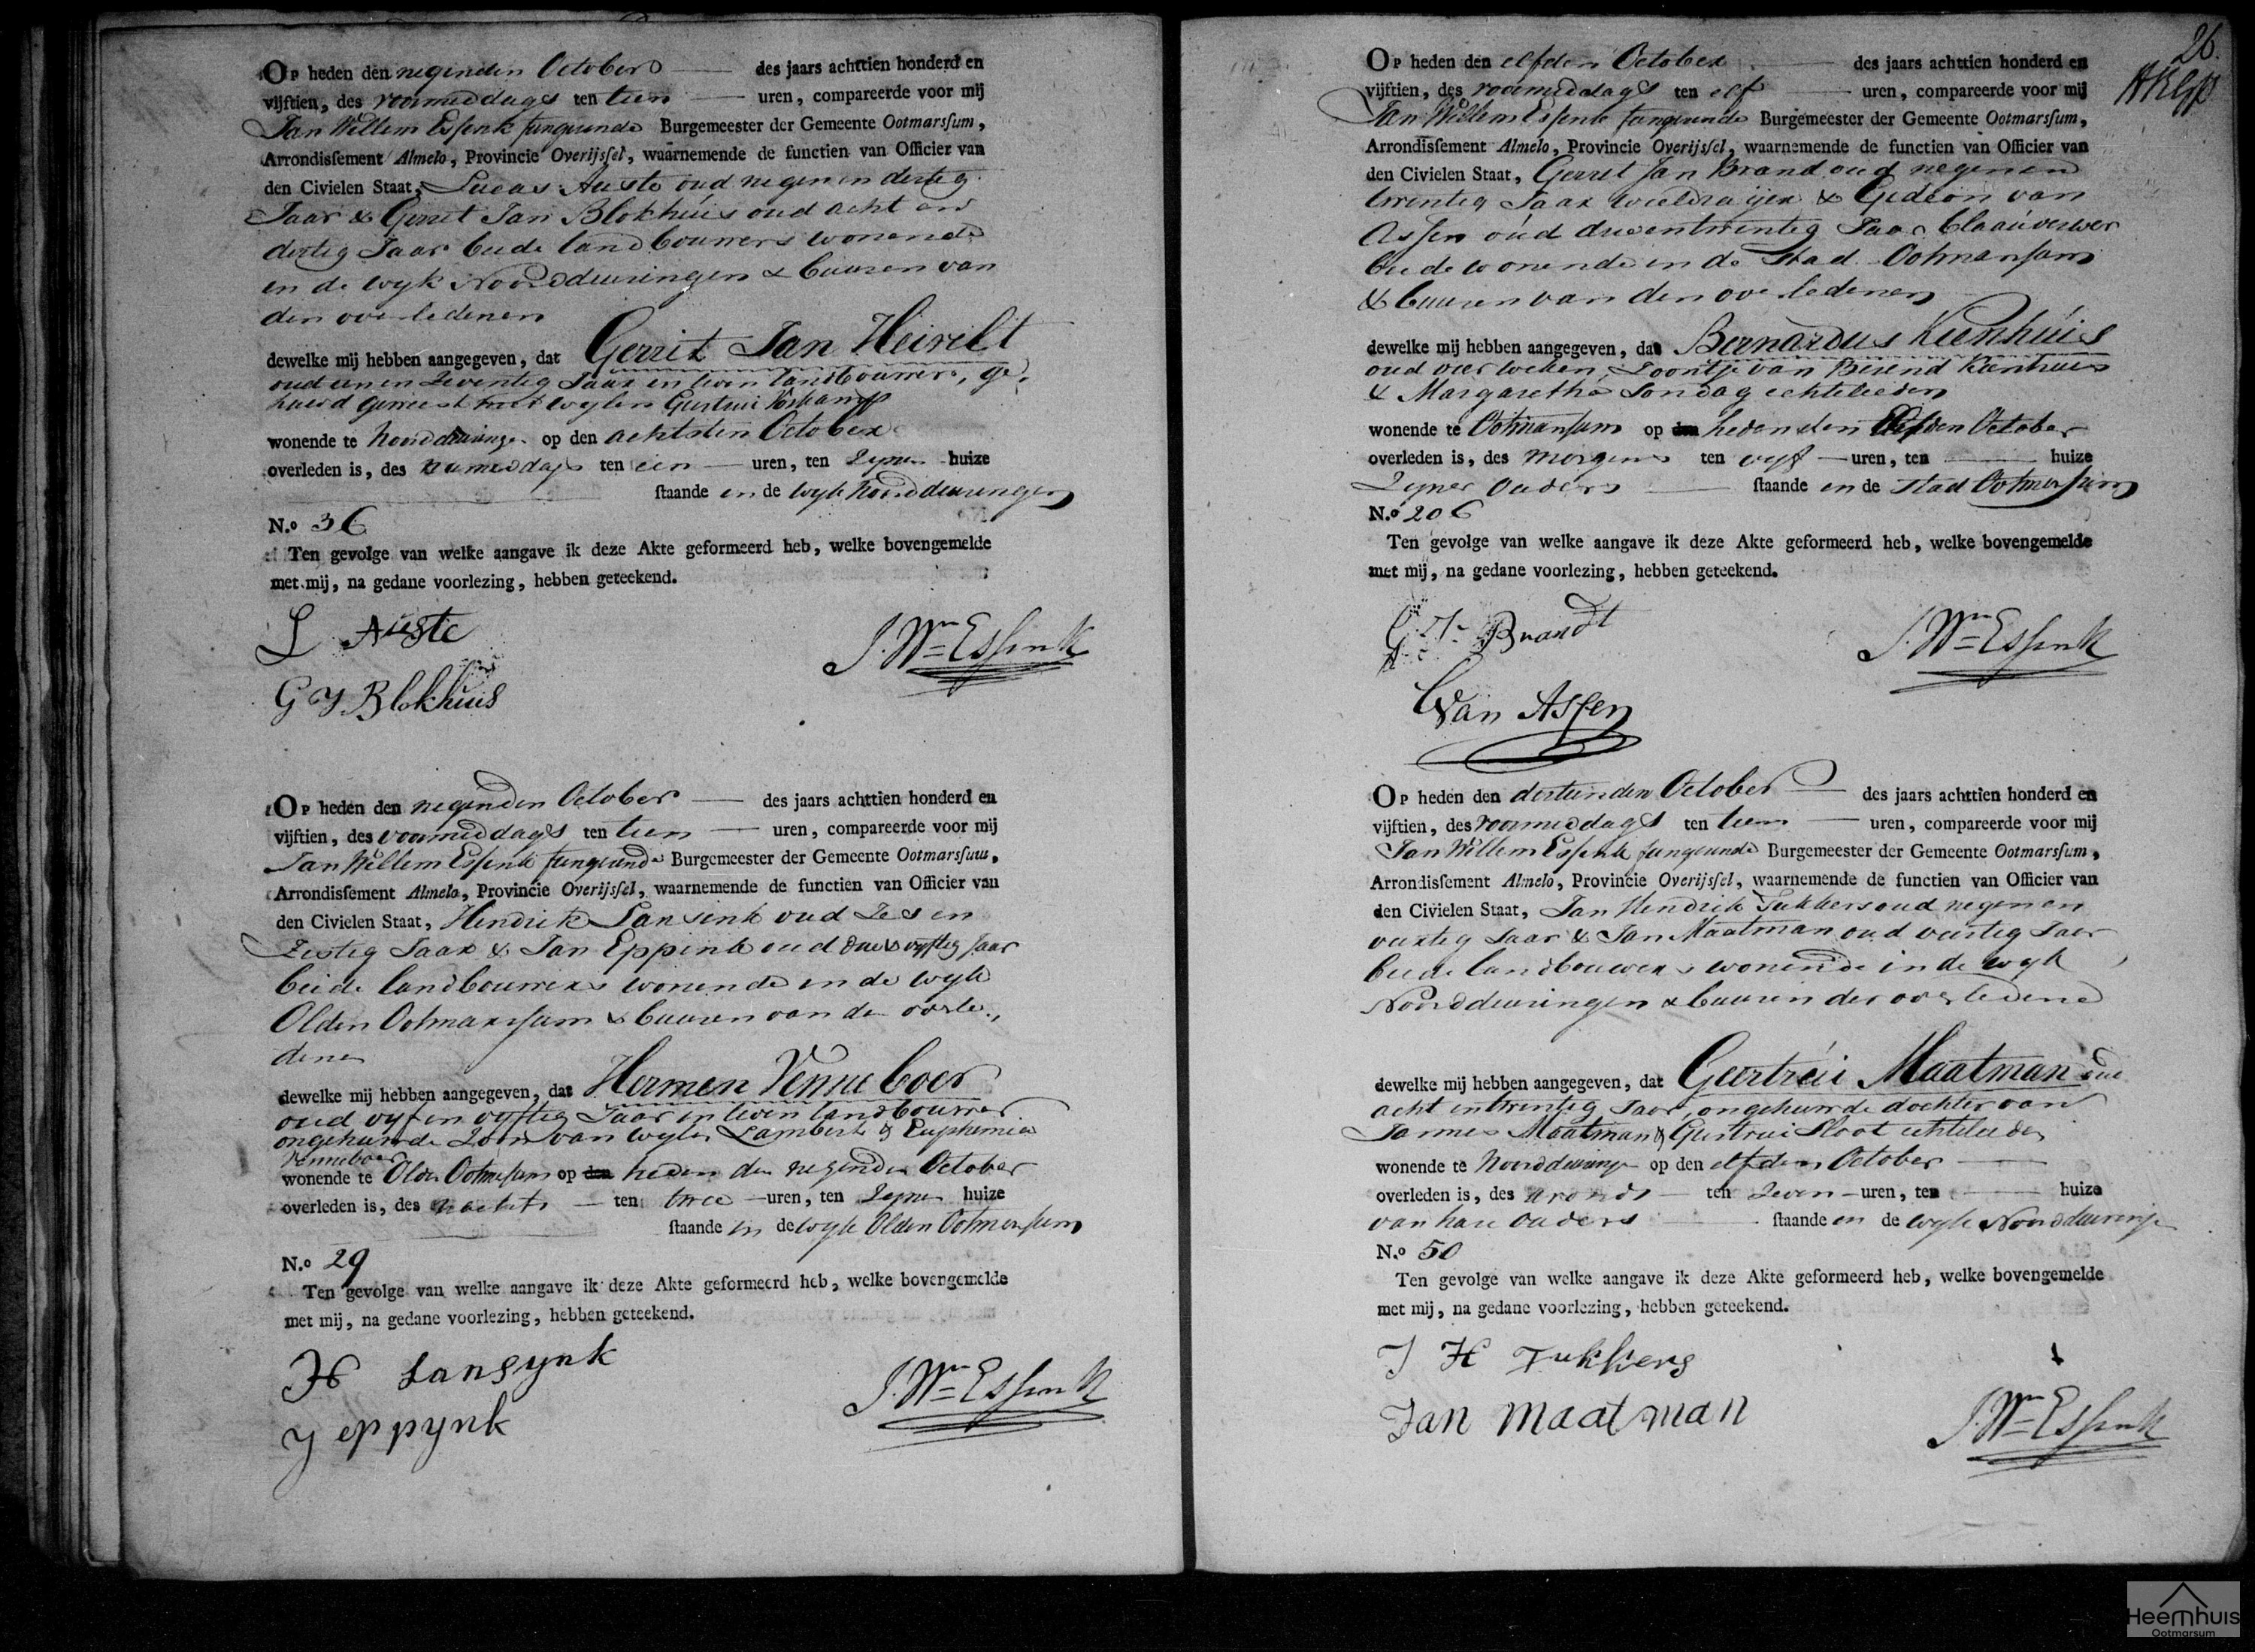 Op heden den negenden October des jaars achttien honderd en
vijftien, des voormiddags ten tien uren, compareerde voor mij
Jan Willem Essink fungerende Burgemeester der Gemeente Ootmarsſum,
Arrondisſement Almelo, Provincie Overijsſel, waarnemende de functien van Officier van
den Civielen Staat, Lucas Auste oud negen en dertig
Jaar & Gerrit Jan Blokhuis oud acht en
dertig Jaar beide landbouwers wonende
in de wyk Noorddeuringen & buuren van
den overledenen
dewelke mij hebben aangegeven, dat Gerrit Jan Heirelt
oud een en Zeventig Jaar in leven landbouwer, ge,
huwd geweest met wylen Geertrui
wonende te Noorddeuringe op den achtsten October
overleden is, des namiddags ten een uren, ten Zynen huize
ſtaande in de wyk Noorddeuringen
N.o 36
Ten gevolge van welke aangave ik deze Akte geformeerd heb, welke bovengemelde
met mij, na gedane voorlezing, hebben geteekend.
L Auste
J. Wm Essink
G J Blokhuis
Op heden den negenden October des jaars achttien honderd en
vijftien, des voormiddags ten tien uren, compareerde voor mij
Jan Willem Essink fungerende Burgemeester der Gemeente Ootmarsſum,
Arrondisſement Almelo, Provincie Overijsſel, waarnemende de functien van Officier van
den Civielen Staat, Hendrik Lansink oud Zes en
Zestig Jaar & Jan Eppink oud drie & vyftig Jaar
beide landbouwers wonende in de wyk
Olden Ootmarssum & buuren van de overle,,
dene
dewelke mij hebben aangegeven, dat Hermen Venneboer
oud vyf en vyftig Jaar in leven landbouwer
ongehuwde Zoon van wylen Lambert & Euphemia
Venneboer
wonende te Olden Ootmarsum op den heden den negenden October
overleden is, des nachts ten twee uren, ten Zynen huize
ſtaande in de wyk Olden Ootmarsum
N.o 29
Ten gevolge van welke aangave ik deze Akte geformeerd heb, welke bovengemelde
met mij, na gedane voorlezing, hebben geteekend.
H Lansynk
J. Wm Essink
J eppynk
26.
Op heden den elfden October des jaars achttien honderd en
vijftien, des voormiddags ten elf uren, compareerde voor mij
Jan Willem Essink fungerende Burgemeester der Gemeente Ootmarsſum,
Arrondisſement Almelo, Provincie Overijsſel, waarnemende de functien van Officier van
den Civielen Staat, Gerrit Jan Brand oud negen en
twentig Jaar wieldraijer & Gideon van
Assen oud drie en twentig Jaar blaauverwer
beide wonende in de Stad Ootmarsum
& buuren van den overledenen
dewelke mij hebben aangegeven, dat Bernardus Kienhuis
oud vier weken, Zoontje van Berend Kienhuis
& Margaretha Sondag echtelieden
wonende te Ootmarsum op den heden den Elfden October
overleden is, des morgens ten vyf uren, ten huize
Zyner Ouders ſtaande in de Stad Ootmarsum
N.o 206
Ten gevolge van welke aangave ik deze Akte geformeerd heb, welke bovengemelde
met mij, na gedane voorlezing, hebben geteekend.
G. J. Brandt
J. Wm Essink
G van Assen
Op heden den dertienden October des jaars achttien honderd en
vijftien, des voormiddags ten tien uren, compareerde voor mij
Jan Willem Essink fungerende Burgemeester der Gemeente Ootmarsſum,
Arrondisſement Almelo, Provincie Overijsſel, waarnemende de functien van Officier van
den Civielen Staat, Jan Hendrik Tukkers oud negen en
veertig Jaar & Jan Maatman oud veertig Jaar
beide landbouwers wonende in de wyk
Noorddeuringen & buuren der overledene
dewelke mij hebben aangegeven, dat Geertrui Maatman oud
acht en twentig Jaar, ongehuwde dochter van
Jannes Maatman & Geertrui Sloot echtelieden
wonende te Noorddeuringe op den elfden October
overleden is, des avonds ten Zeven uren, ten huize
van hare Ouders ſtaande in de wyk Noorddeuringe
N.o 50
Ten gevolge van welke aangave ik deze Akte geformeerd heb, welke bovengemelde
met mij, na gedane voorlezing, hebben geteekend.
J H Tukkers
Jan Maatman
J. Wm Essink
Heemhuis
Ootmarsum